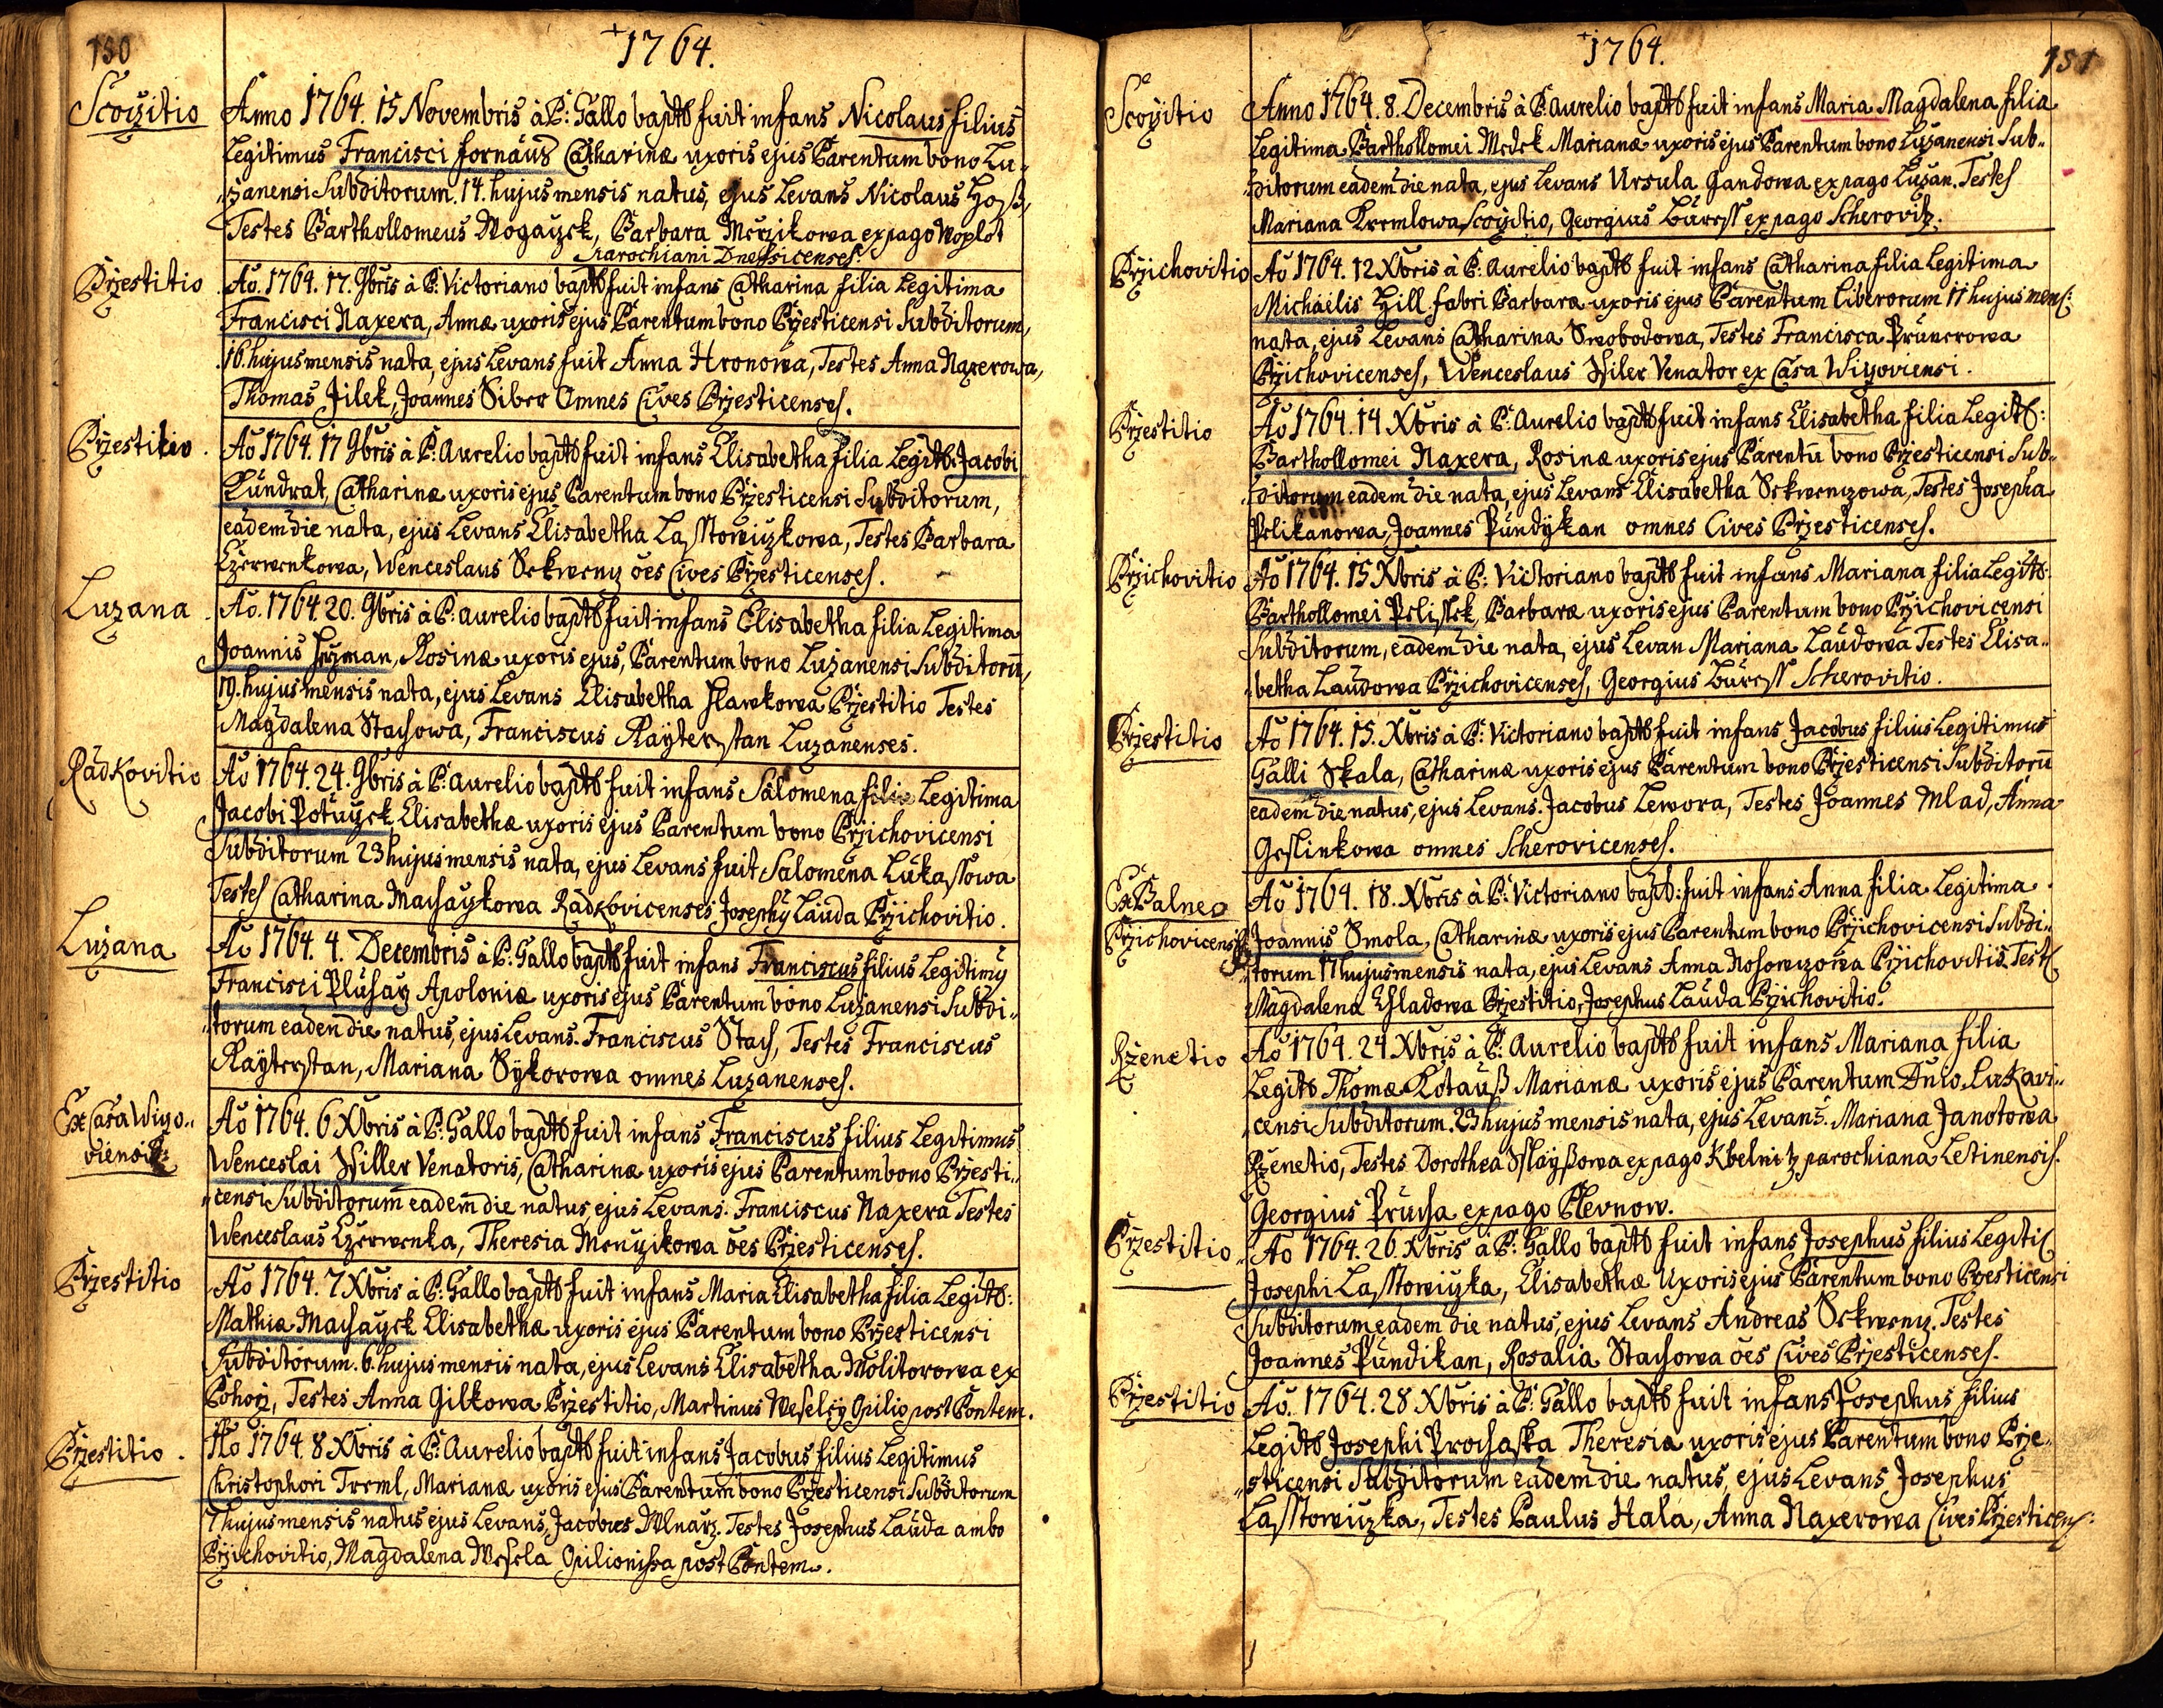 150
+1764.
Scoÿitio
Anno 1764. 15 Novembris à P: Gallo baptß fuit infans Nicolaus filius
Legitimus Francisci fornaus Catharinæ uxoris ejus Parentum bono Lu-
"zanensi Subditorum. 14. hujus mensis natus, ejus Levans Nicolaus Hoß,
Testes Barthollomeus Mogaÿzek, Barbara Merzikowa ex pago Woplot
Parochiani Dnessicenses.
Przestitio
Ao. 1764. 17. 9bris à P. Victoriano baptß fuit infans Catharina filia Legitima
Francisci Naxera, Annæ uxoris ejus Parentum bono Przesticensi Subditorum,
16. hujus mensis nata, ejus Levans fuit Anna Hronowa, Testes Anna Naxerowa,
Thomas Jilek, Joannes Siber Omnes Cives Przesticenses.
Przestitio
Ao 1764. 17 9bris à P. Aurelio baptß fuit infans Elisabetha filia Legitß: Jacobi
Kundrat, Catharinæ uxoris ejus Parentum bono Przesticensi Subditorum,
eadem die nata, ejus Levans Elisabetha Lasstowiczkowa, Testes Barbara
Czerwenkowa, Wenceslaus Sekwenz ões Cives Przesticenses.
Luzana
Ao. 1764. 20. 9bris à P: aurelio baptß fuit infans Elisabetha filia Legitima
Joannis Heÿman, Rosinæ uxoris ejus, Parentum bono Luzanensi Subditorū,
19. hujus mensis nata, ejus Levans Elisabetha Hlawkowa Przestitio Testes
Magdalena Stachowa, Franciscus Raÿterstan Luzanenses.
Radkovitio
Ao 1764. 24. 9bris à P. aurelio baptß fuit infans Salomena filia Legitima
Jacobi Potuÿzek Elisabethæ uxoris ejus Parentum bono Przichovicensi
Subditorum 23 hujus mensis nata, ejus Levans fuit Salomena Lukassowa
Testes Catharina Machaÿkowa Radkovicenses Josephỹ Lauda Przichovitio.
Luzana
Ao 1764. 4. Decembris à P: Gallo baptß fuit infans Franciscus filius Legitimỹ
Francisci Pluharz Apoloniæ uxoris ejus Parentum bono Luzanensi Subdi"
"torum eaden die natus, ejus Levans. Franciscus Stach, Testes Franciscus
Raÿterstan, Mariana Sÿkorowa omnes Luzanenses.
Ex Casa Wiÿo"
viensi
Ao 1764. 6 Xbris à P: Gallo baptß fuit infans Franciscus filius Legitimus
Wenceslai Hiller Venatoris, Catharinæ uxoris ejus Parentum bono Przesti"
"censi Subditorum eadem die natus ejus Levans. Franciscus Naxera Testes
Wenceslaus Czerwenka, Theresia Menzikowa ões Przesticenses.
Przestitio
Ao 1764. 7 Xbris à P: Gallo baptß fuit infans Maria Elisabetha filia Legitß:
Mathiæ Machaÿek Elisabethæ uxoris ejus Parentum bono Przesticensi
Subditorum. 6. hujus mensis nata, ejus Levans Elisabetha Molitorowa ex
Pohorz, Testes Anna Gilkowa Przestitio, Martinus Weselÿ Opilio post Pontem.
Przestitio.
Ao 1764. 8 Xbris à P: Aurelio baptß fuit infans Jacobus filius Legitimus
Christophori Treml, Marianæ uxoris ejus Parentum bono Przesticensi Subditorum
7 hujus mensis natus ejus Levans, Jacobus Mlnarz. Testes Josephus Lauda ambo
Przichovitio, Magdalena Wesela Opilionissa post Pontem.
+1764.
151
Scoÿitio
Anno 1764. 8. Decembris à P. aurelio baptß fuit infans Maria Magdalena filia
Legitima Barthollomei Medek Marianæ uxoris ejus Parentum bono Luzanensi Sub"
"ditorum eadem die nata, ejus Levans Ursula Jandowa ex pago Luzan. Testes
Mariana Kremlowa Scoÿitio, Georgius Buress ex pago Scherovitz.
Przichovitio
Ao 1764. 12 Xbris à P: aurelio baptß fuit infans Catharina filia Legitima
Michaelis Hill fabri Barbaræ uxoris ejus Parentum Liberorum 11 hujus mens:
nata, ejus Levans Catharina Swobodowa, Testes Francisca Prunerowa
Przichovicenses, Wenceslaus Hiler Venator ex Casa Wiÿoviensi.
Przestitio
Ao 1764. 14 Xbris à P: Aurelio baptß fuit infans Elisabetha filia Legitß:
Barthollomei Naxera, Rosinæ uxoris ejus Parentū bono Przesticensi Sub"
"ditorum eadem die nata, ejus Levans Elisabetha Sekwenzowa, Testes Josepha
Pelikanowa, Joannes Pundÿkan omnes Cives Przesticenses.
Przichovitio
Ao 1764. 15 Xbris à P: Victoriano baptß fuit infans Mariana filia Legitß:
Barthollomei Pelissek, Barbaræ uxoris ejus Parentum bono Przichovicensi
Subditorum, eadem die nata, ejus Levan Mariana Laudowa Testes Elisa"
"betha Laudowa Przichovicenses, Georgius Buress Scherovitio.
Przestitio
Ao 1764. 15. Xbris à P: Victoriano baptß fuit infans Jacobus filius Legitimus
Galli Skala, Catharinæ uxoris ejus Parentum bono Przesticensi Subditorū
eadem die natus, ejus Levans. Jacobus Lewora, Testes Joannes Mlad, Anna
Geslinkowa omnes Scherovicenses.
Ex Balneo
Przichovicensi
Ao 1764. 18. Xbris à P: Victoriano baptß: fuit infans Anna filia Legitima
Joannis Smola, Catharinæ uxoris ejus Parentum bono Przichovicensi Subdi"
"torum 17 hujus mensis nata, ejus Levans Anna Nosowzowa Przichovitiis Test
Magdalena Chladowa Przestitio, Josephus Lauda Przichovitio.
Rzenetio
Ao 1764. 24. Xbris à P: Aurelio baptß fuit infans Mariana filia
Legitß Thomæ Kotauß Marianæ uxoris ejus Parentum Dnio Lukavi"
"censi Subditorum. 23 hujus mensis nata, ejus Levans. Mariana Janotowa
Rzenetio, Testes Dorothea Sslaÿßowa ex pago Kbelnitz parochiana Letinensis.
Georgius Prucha ex pago Plevnow.
Przestitio
Ao 1764. 26. Xbris à P: Gallo baptß fuit infans Josephus filius Legiti
Josephi Lasstowiczka, Elisabethæ Uxoris ejus Parentum bono Przesticensi
Subditorum eadem die natus, ejus Levans Andreas Sekwenz. Testes
Joannes Pundikan, Rosalia Stachowa ões Cives Przesticenses.
Przestitio
Ao. 1764. 28 Xbris à P: Gallo baptß fuit infans Josephus filius
Legitß Josephi Prochaska Theresiæ uxoris ejus Parentum bono Prze"
"sticensi Subditorum eadem die natus, ejus Levans Josephus
Lasstowiczka, Testes Paulus Hala, Anna Naxerowa Cives Przesticens: